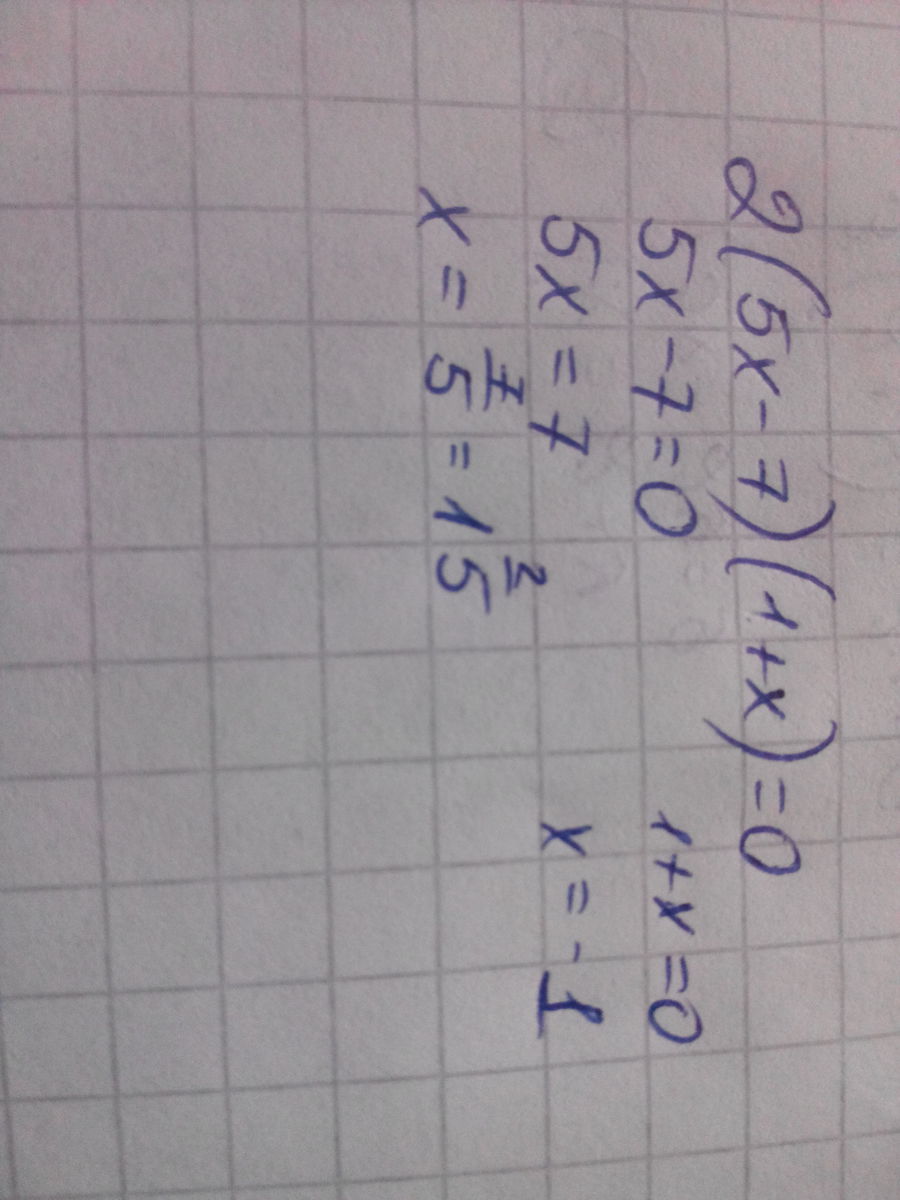 2(5x-7)(1+x)=0
5x-7=0 1+x=0
5x=7 x=-1
x=7/5=1 2/5